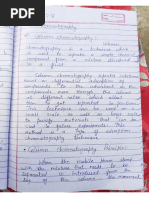 Chromatography
Column Chromatography :
Column
chromatography is a technique which
is used to separate a single
compound from a mixture
dissolved in a fluid.
Column chromatography separates substances
based on differential adsorption of
compounds to the adsorbent as the
compounds move through the column
at different rates which allow
them to get separated in fractions.
This technique can be used on
small scale as well as large scale
to purify materials that can be
used in future experiments. This
method is a type of adsorption
chromatography technique.
Column Chromatography Principle:
When the mobile phase along
with the mixture that needs to be
separated is introduced from the
top of the column, the movement